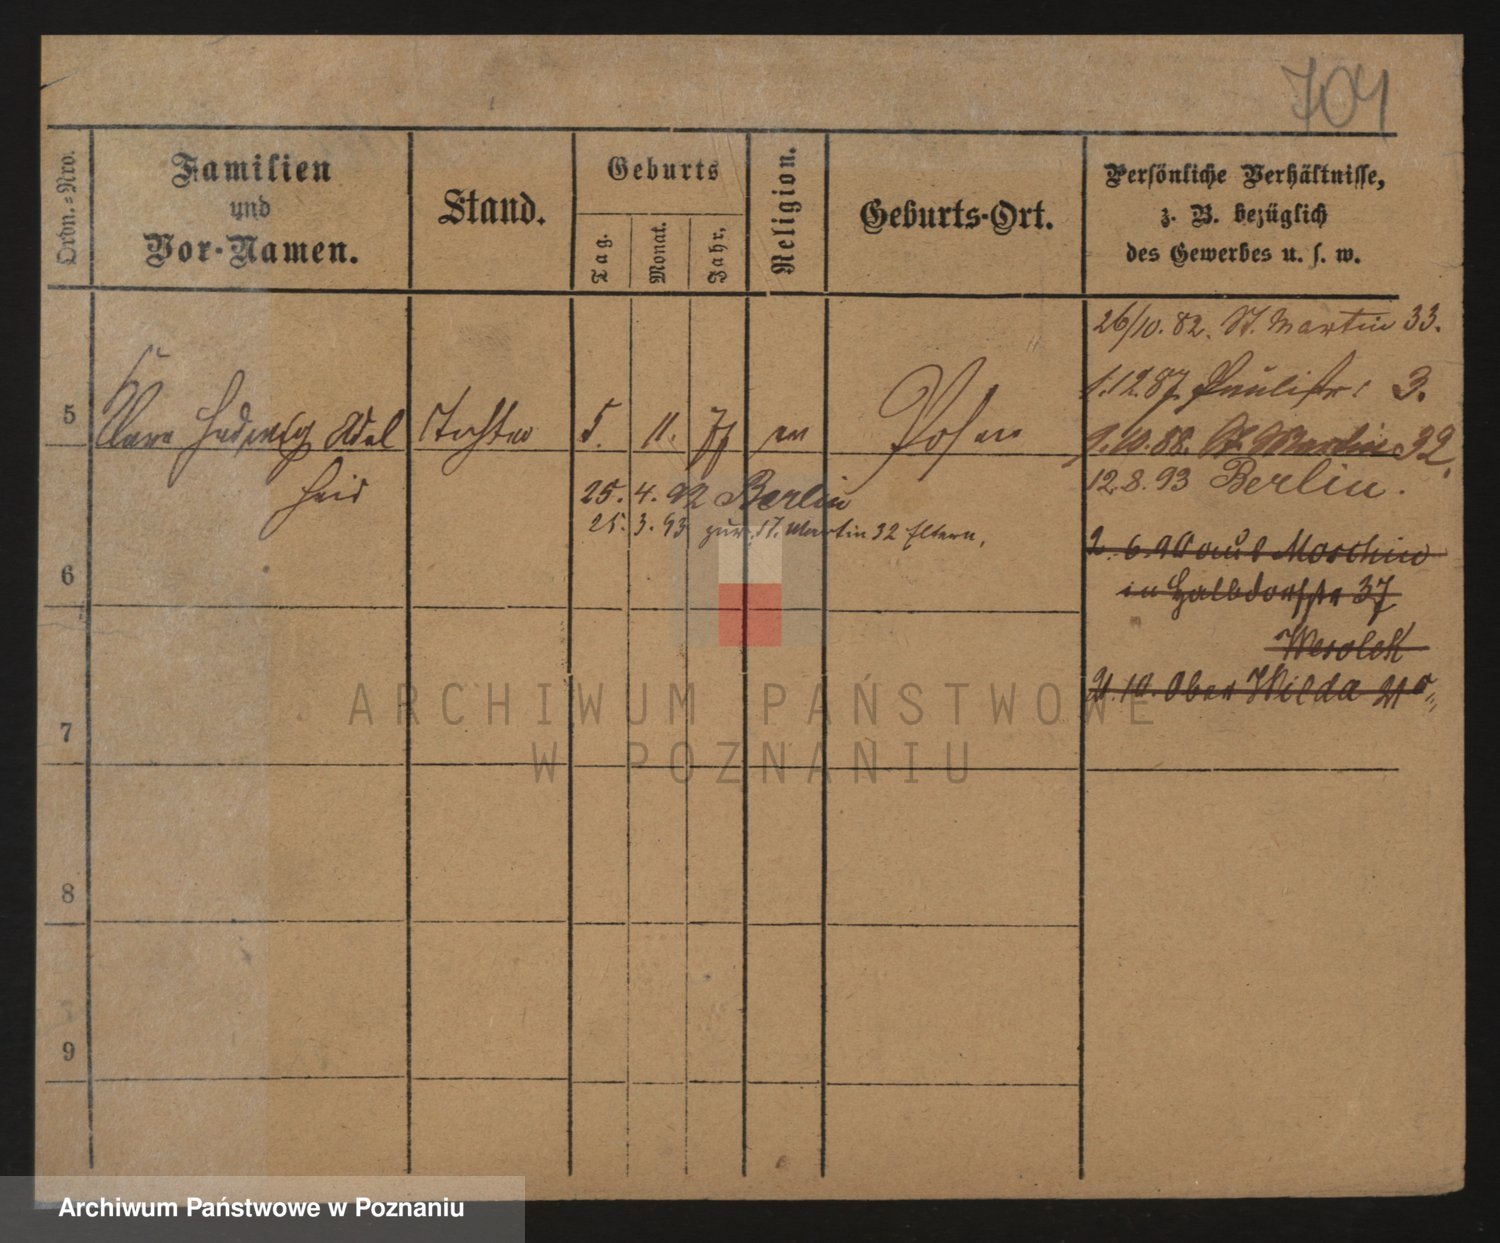 704
Ordn.=Nro.
Familien
und
Vor-Namen.
Stand.
Geburts
Tag.
Monat.
Jahr.
Religion.
Geburts-Ort.
Persönliche Verhältnisse,
z. B. bezüglich
des Gewerbes u. s. w.
26/10. 82. St. Martin 33.
1.12.87. Paulistr. 3.
5
Clara Hedwig Adel
heid
Tochter
5. 11. 77 ev
Posen
1.10.88. St. Martin 32.
12.8.93 Berlin.
25. 4. 92 Berlin
25. 3. 93 zur. St. Martin 32 Eltern.
2. 6. 90 aus Moschin
in Halbdorfstr 37
Wesolek
6
21. 10. Ober Wilda
7
8
9
ARCHIWUM PAŃSTWOWE
W POZNANIU
Archiwum Państwowe w Poznaniu